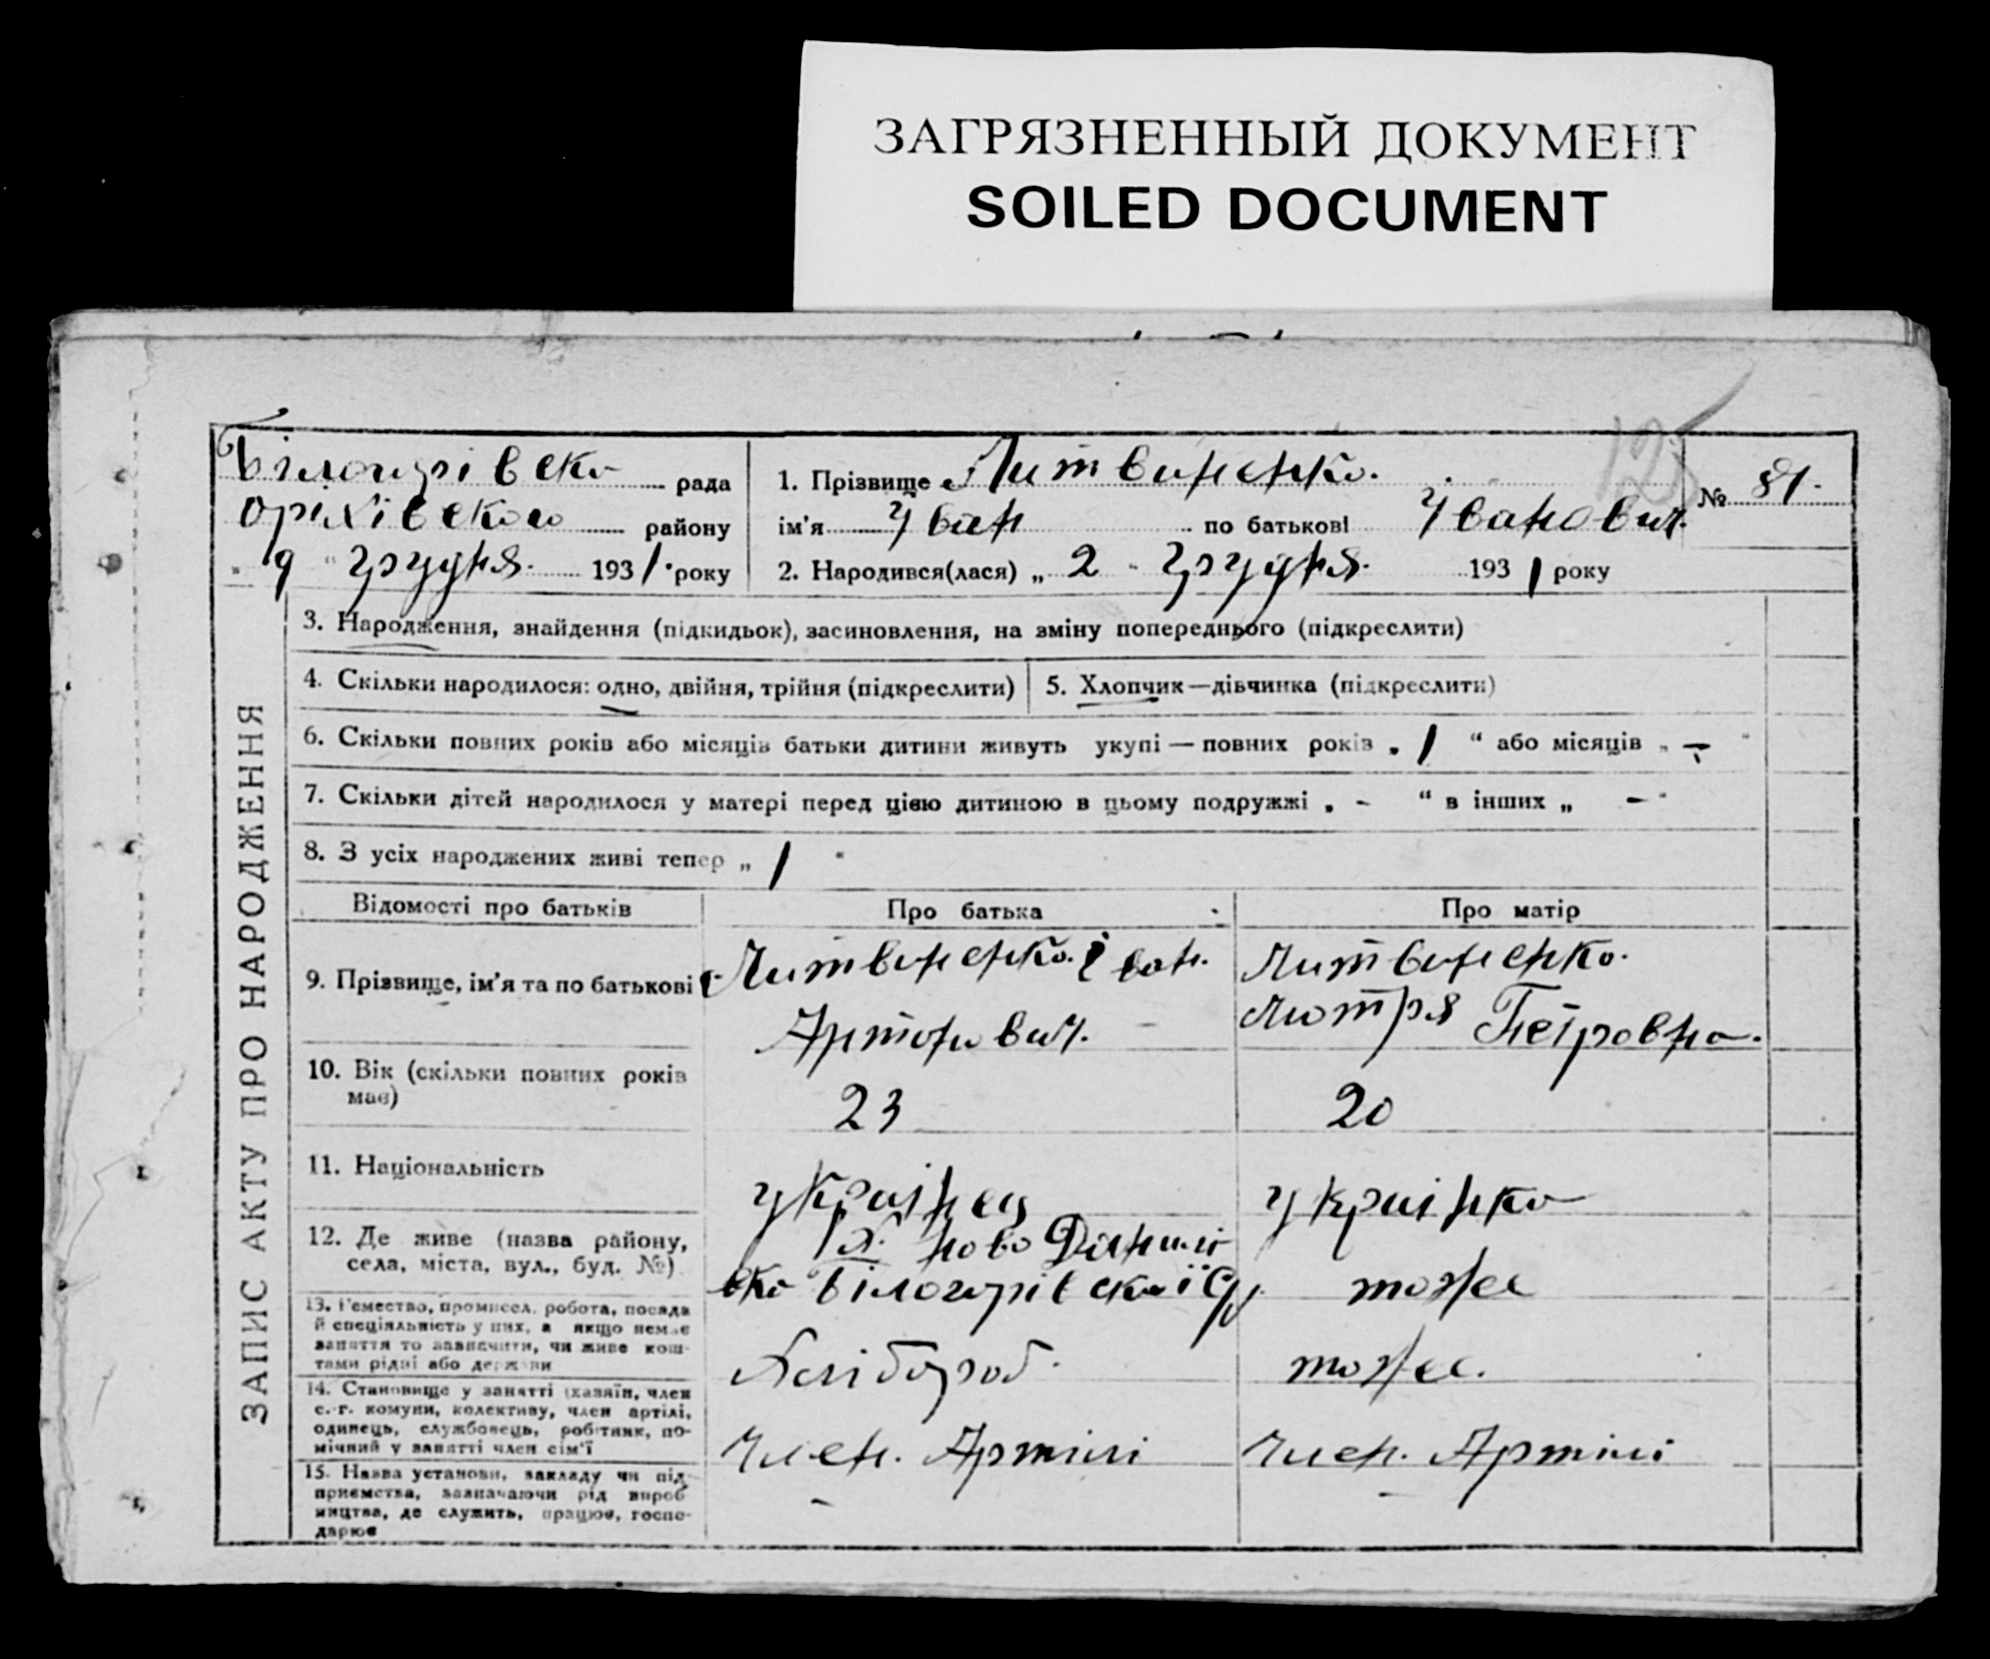 ЗАГРЯЗНЕННЫЙ ДОКУМЕНТ
SOILED DOCUMENT
125
Білогрівська рада
Оріхівского району
„ 9 “ грудня. 1931 року
1. Прізвище Литвиненко.
ім'я Іван по батькові Іванович.
№ 81.
2. Народився(лася) „ 2 “ грудня. 1931 року
ЗАПИС АКТУ ПРО НАРОДЖЕННЯ
3. Народження, знайдення (підкидьок), засиновлення, на зміну попереднього (підкреслити)
4. Скільки народилося: одно, двійня, трійня (підкреслити)
5. Хлопчик—дівчинка (підкреслити)
6. Скільки повних років або місяців батьки дитини живуть укупі — повних років „ 1 “ або місяців „ — “
7. Скільки дітей народилося у матері перед цією дитиною в цьому подружжі „ - “ в інших „ — “
8. З усіх народжених живі тепер „ 1 “
Відомості про батьків
Про батька
Про матір
9. Прізвище, ім'я та по батькові
Литвиненко Іван.
Литвиненко.
Мотря Петровна.
10. Вік (скільки повних років має)
23
20
11. Національність
українец
українка
12. Де живе (назва району,
села, міста, вул., буд. №)
х. ново Данилі
вка Білогорівскої С/р.
тоже
13. Ремество, промисел, робота, посада
й спеціяльність у них, а якщо немає
заняття то зазначити, чи живе кош-
тами рідні або держави
Хлібороб.
тоже.
14. Становище у занятті (хазяїн, член
с.-г. комуни, колективу, член артілі,
одинець, службовець, робітник, по-
мічний у занятті член сім'ї
Член. Артілі
Член. Артілі
15. Назва установи, закладу чи під-
приємства, зазначаючи рід вироб-
ництва, де служить, працює, госпо-
дарює